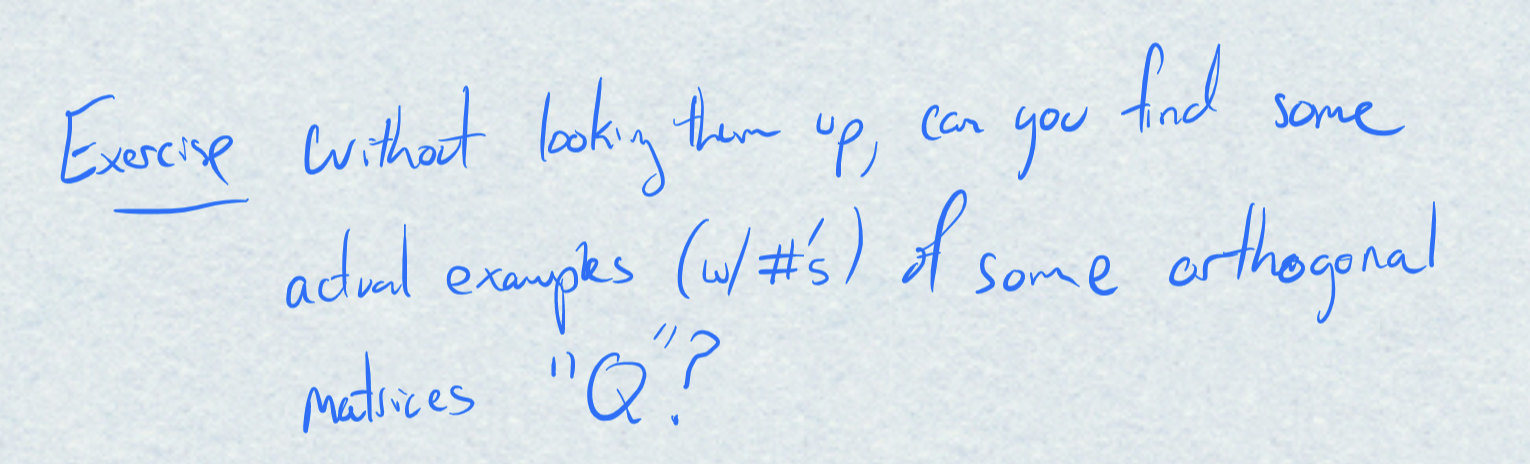 Exercise Without looking them up, can you find some
actual examples (w/ #'s) of some orthogonal
matrices "Q"?